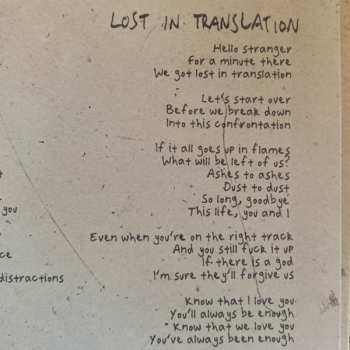 LOST IN TRANSLATION
Hello stranger
For a minute there
We got lost in translation
Let's start over
Before we break down
Into this confrontation
If it all goes up in flames
What will be left of us?
Ashes to ashes
Dust to dust
So long, goodbye
This life, you and I
Even when you're on the right track
And you still fuck it up
If there is a god
I'm sure they'll forgive us
Know that I love you
You'll always be enough
Know that we love you
You've always been enough
t
you
ce
distractions